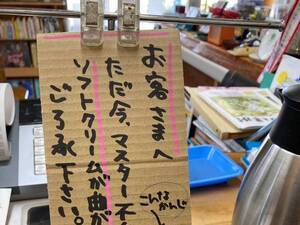 お客さまへ
ただ今、マスター不
ソフトクリームが曲が
ごろ承下さい。
こんなかんじ